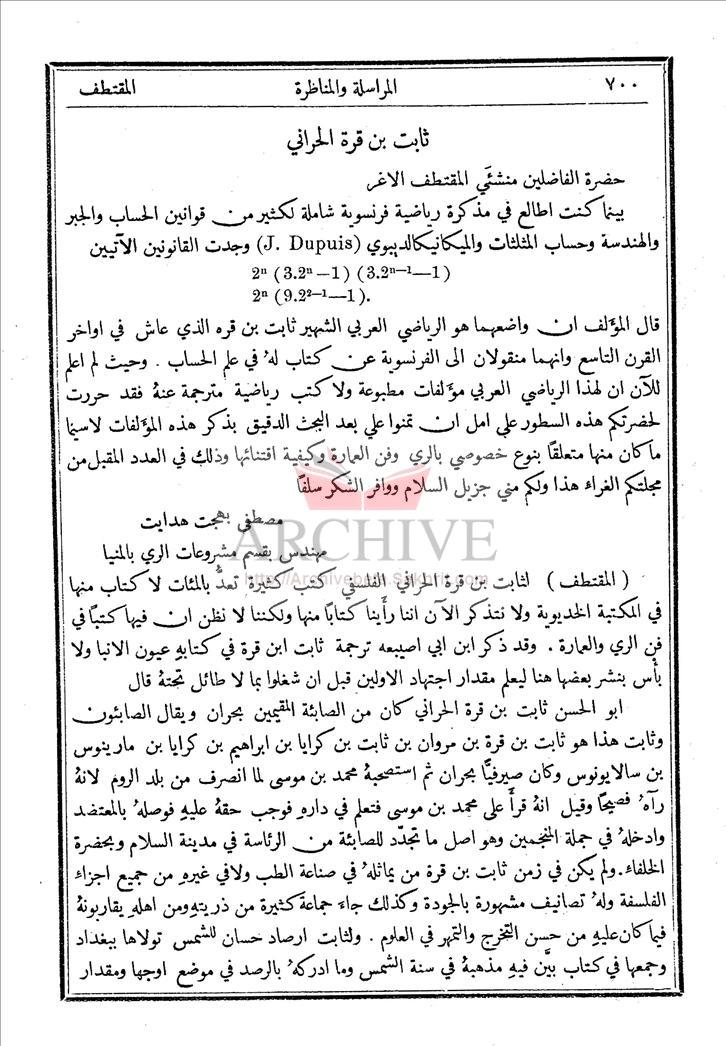 ٧٠٠ المراسلة والمناظرة المقتطف
ثابت بن قرة الحراني
حضرة الفاضلين منشئَي المقتطف الاغر
بينما كنت اطالع في مذكرة رياضية فرنسوية شاملة لكثير من قوانين الحساب والجبر
والهندسة وحساب المثلثات والميكانيكالديبوي (J. Dupuis) وجدت القانونين الآتيين
2ⁿ (3.2ⁿ−1) (3.2ⁿ⁻¹−1)
2ⁿ (9.2²⁻¹−1).
قال المؤلف ان واضعهما هو الرياضي العربي الشهير ثابت بن قره الذي عاش في اواخر
القرن التاسع وانهما منقولان الى الفرنسوية عن كتاب لهُ في علم الحساب . وحيث لم اعلم
للآن ان لهذا الرياضي العربي مؤلفات مطبوعة ولا كتب رياضية مترجمة عنهُ فقد حررت
لحضرتكم هذه السطور على امل ان تمنوا علي بعد البحث الدقيق بذكر هذه المؤلفات لاسيما
ما كان منها متعلقًا بنوع خصوصي بالري وفن العمارة وكيفية اقتنائها وذلك في العدد المقبل من
مجلتكم الغراء هذا ولكم مني جزيل السلام ووافر الشكر سلفًا
مصطفى بهجت هدايت
ARCHIVE
مهندس بقسم مشروعات الري بالمنيا
http://Archivebeta.Sakhrit.com
( المقتطف ) لثابت بن قرة الحراني الفلسفي كتب كثيرة تعدُّ بالمئات لا كتاب منها
في المكتبة الخديوية ولا نتذكر الآن اننا رأينا كتابًا منها ولكننا لا نظن ان فيها كتبًا في
فن الري والعمارة . وقد ذكر ابن ابي اصيبعه ترجمة ثابت ابن قرة في كتابهِ عيون الانبا ولا
بأس بنشر بعضها هنا ليعلم مقدار اجتهاد الاولين قبل ان شغلوا بما لا طائل تحتهُ قال
ابو الحسن ثابت بن قرة الحراني كان من الصابئة المقيمين بحران ويقال الصابئون
وثابت هذا هو ثابت بن قرة بن مروان بن ثابت بن كرايا بن ابراهيم بن كرايا بن مارينوس
بن سالايونوس وكان صيرفيًّا بحران ثم استصحبهُ محمد بن موسى لما انصرف من بلد الروم لانهُ
رآهُ فصيحًا وقيل انهُ قرأَ على محمد بن موسى فتعلم في دارهِ فوجب حقهُ عليهِ فوصلهُ بالمعتضد
وادخلهُ في جملة المنجمين وهو اصل ما تجدّد للصابئة من الرئاسة في مدينة السلام وبحضرة
الخلفاء. ولم يكن في زمن ثابت بن قرة من يماثلهُ في صناعة الطب ولا في غيرهِ من جميع اجزاء
الفلسفة ولهُ تصانيف مشهورة بالجودة وكذلك جاءَ جماعة كثيرة من ذريتهِ ومن اهلهِ يقاربونهُ
فيما كان عليهِ من حسن التخرج والتمهر في العلوم . ولثابت ارصاد حسان للشمس تولاها ببغداد
وجمعها في كتاب بيَّن فيهِ مذهبهُ في سنة الشمس وما ادركهُ بالرصد في موضع اوجها ومقدار